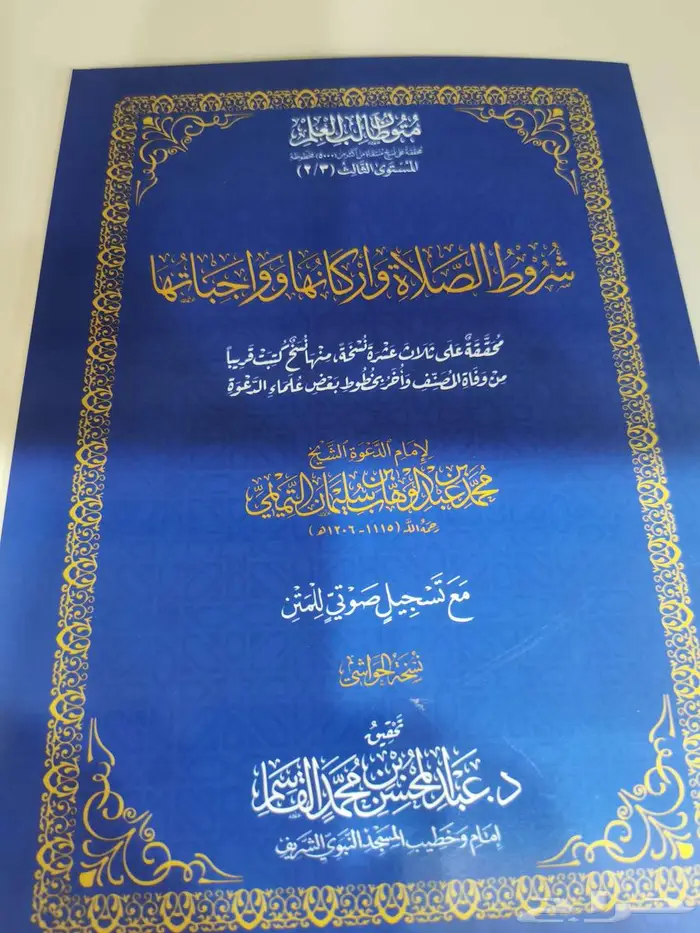 متون طالب العلم
محققة على نسخ منتقاة من أكثر من (٥٠٠٠) مخطوطة
المستوى الثالث (٢/٣)
شُرُوطُ الصَّلَاةِ وَأَرْكَانُهَا وَوَاجِبَاتُهَا
مُحَقَّقَةٌ عَلَى ثَلَاثَ عَشْرَةَ نُسْخَةً، مِنْهَا نُسَخٌ كُتِبَتْ قَرِيباً
مِنْ وَفَاةِ المُصَنِّفِ وَأُخَرُ بِخُطُوطِ بَعْضِ عُلَمَاءِ الدَّعْوَةِ
لِإِمَامِ الدَّعْوَةِ الشَّيْخِ
مُحَمَّدِ بْنِ عَبْدِ الوَهَّابِ بْنِ سُلَيْمَانَ التَّمِيمِيِّ
رحمه الله (١١١٥ - ١٢٠٦هـ)
مَعَ تَسْجِيلٍ صَوْتِيٍّ لِلْمَتْنِ
نُسْخَةُ الحَوَاشِي
تَحْقِيقُ
د. عَبْدِ المُحْسِنِ بْنِ مُحَمَّدٍ القَاسِمِ
إمَام وَخَطِيب المسْجِد النَّبَويّ الشَّريف